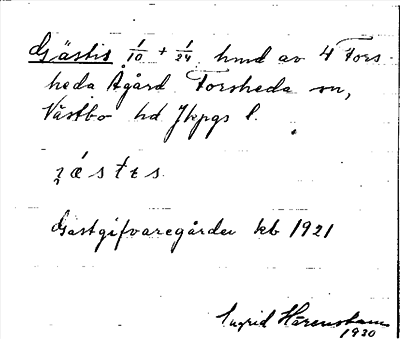 Gästis 1/10 + 1/24 hmd av 4 Fors
heda Ågård Forsheda sn,
Västbo hd Jkpgs l.
Gästgifvaregården kb 1921
Ingrid Hårenstam
1930